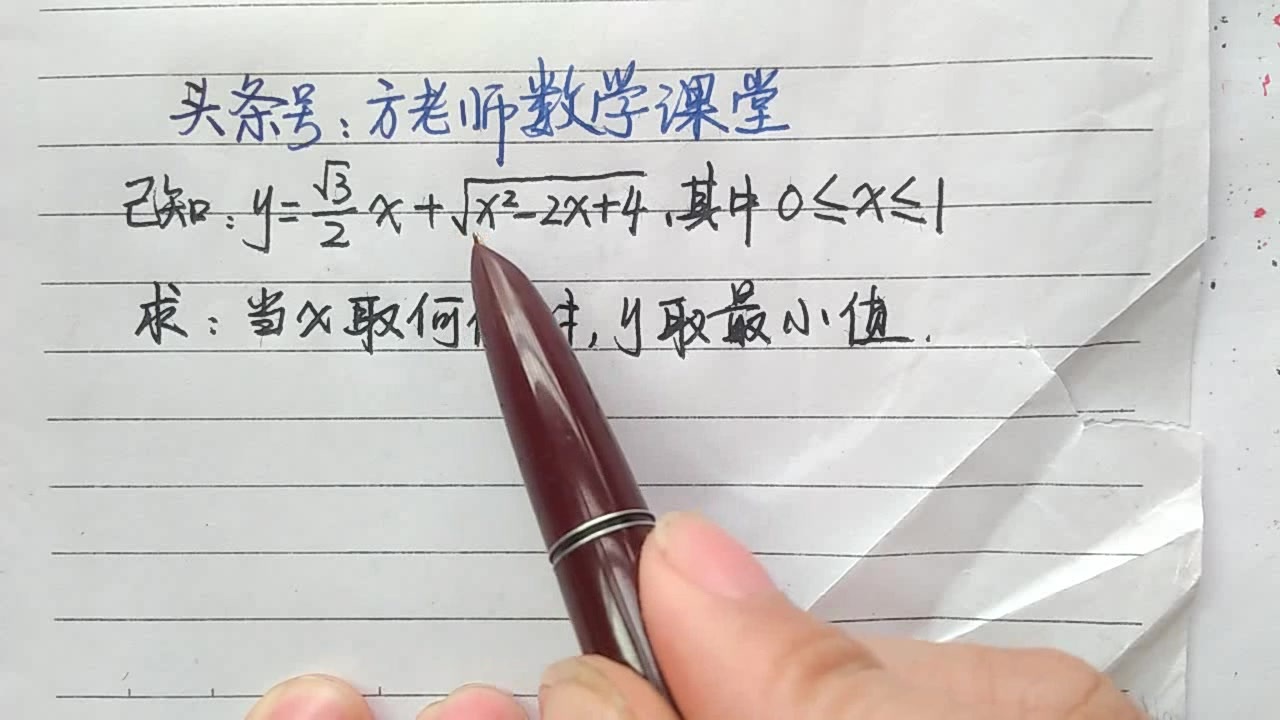 头条号:方老师数学课堂
已知:y=√3/2 x+√(x²-2x+4),其中0≤x≤1
求:当x取何 ,y取最小值.